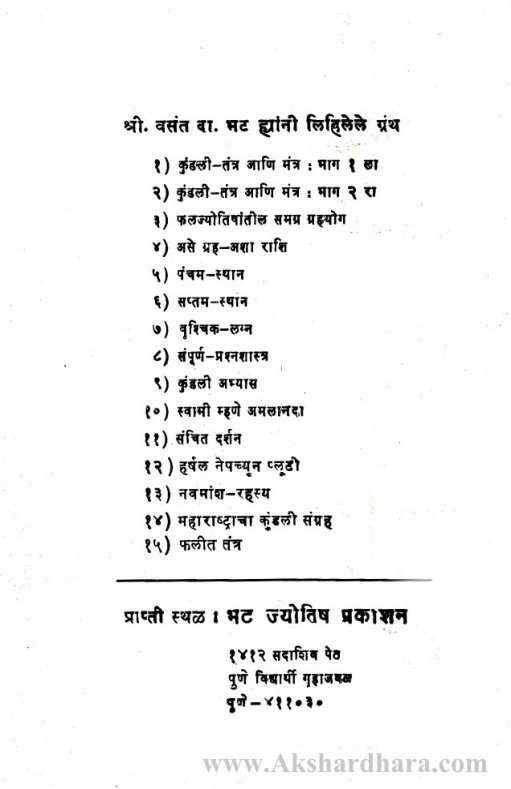 श्री. वसंत दा. भट ह्यांनी लिहिलेले ग्रंथ
१) कुंडली–तंत्र आणि मंत्र : भाग १ ला
२) कुंडली–तंत्र आणि मंत्र : भाग २ रा
३) फलज्योतिषांतील समग्र ग्रहयोग
४) असे ग्रह–अशा राशि
५) पंचम–स्थान
६) सप्तम–स्थान
७) वृश्चिक–लग्न
८) संपूर्ण–प्रश्नशास्त्र
९) कुंडली अभ्यास
१०) स्वामी म्हणे अमलानंदा
११) संचित दर्शन
१२) हर्षल नेपच्यून प्लूटो
१३) नवमांश–रहस्य
१४) महाराष्ट्राचा कुंडली संग्रह
१५) फलीत तंत्र
प्राप्ती स्थळ : भट ज्योतिष प्रकाशन
१४१२ सदाशिव पेठ
पुणे विद्यार्थी गृहाजवळ
पुणे–४११०३०
www.Akshardhara.com